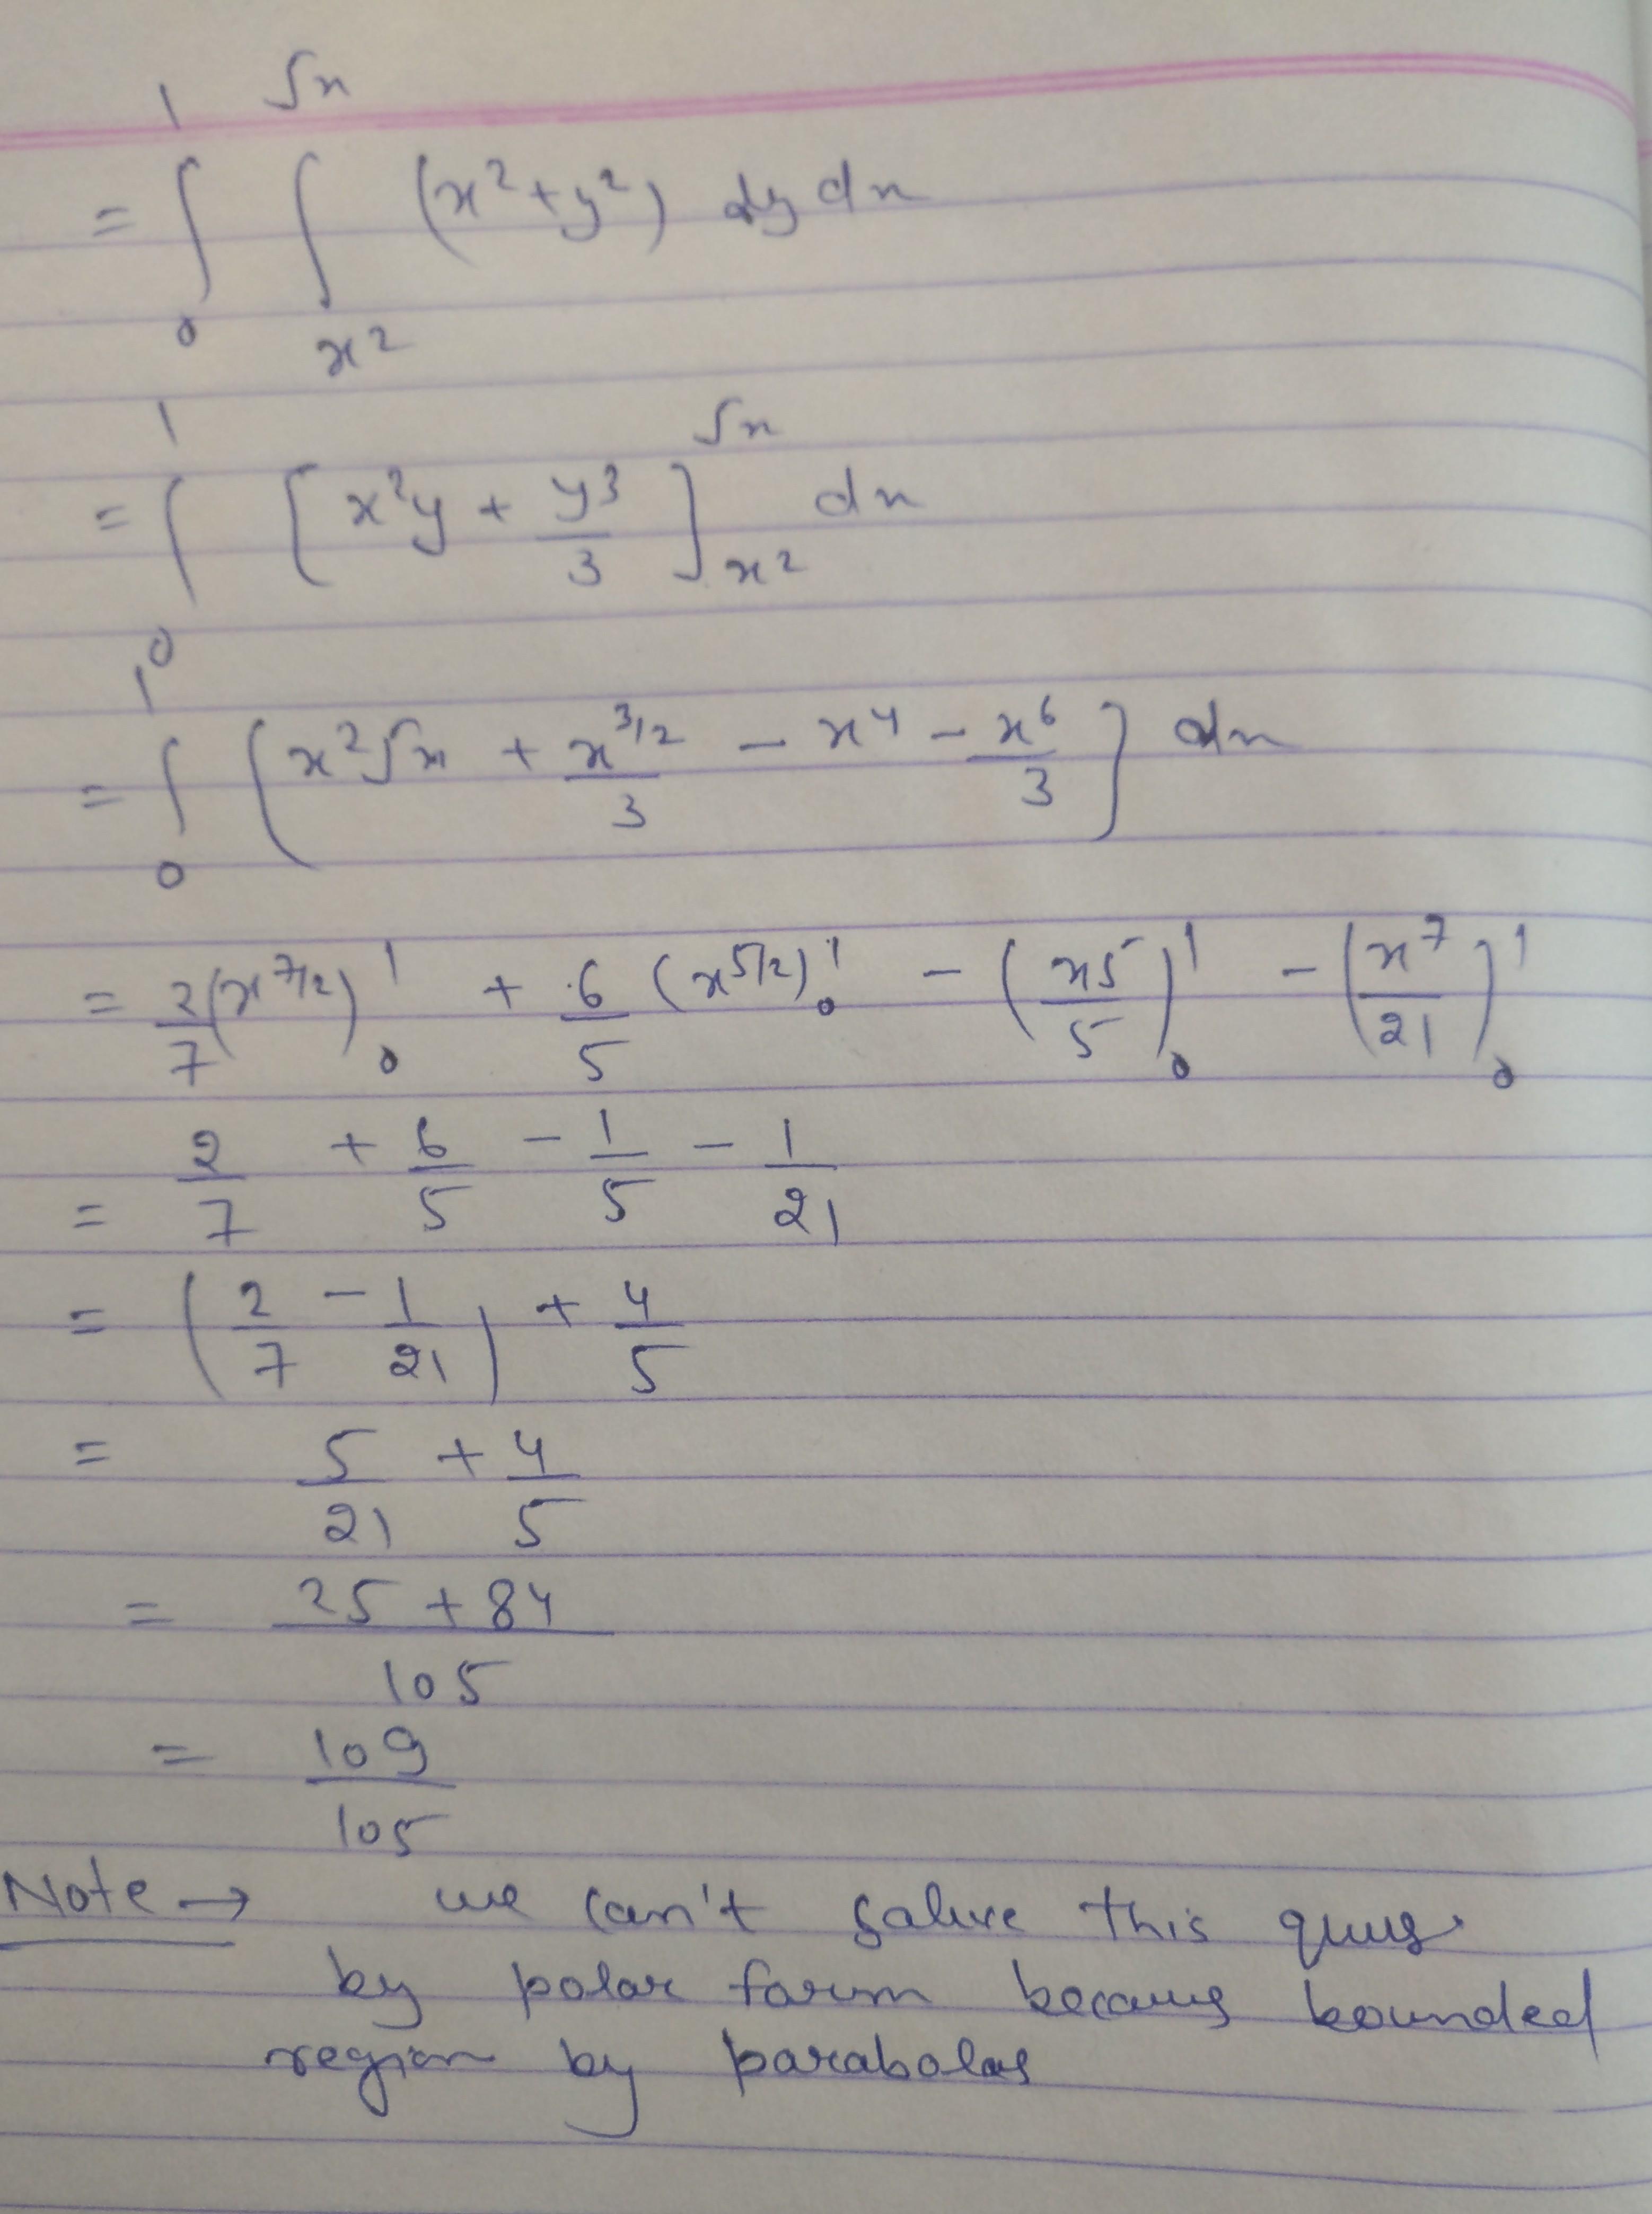 = ∫₀¹ ∫_{x²}^{√x} (x²+y²) dy dx
= ∫₀¹ [x²y + y³/3]_{x²}^{√x} dx
= ∫₀¹ [x²√x + x^{3/2}/3 - x⁴ - x⁶/3] dx
= 2/7 (x^{7/2})₀¹ + 6/5 (x^{5/2})₀¹ - (x⁵/5)₀¹ - (x⁷/21)₀¹
= 2/7 + 6/5 - 1/5 - 1/21
= (2/7 - 1/21) + 4/5
= 5/21 + 4/5
= (25 + 84)/105
= 109/105
Note → we can't solve this ques
by polar form becaus bounded
region by parabolas